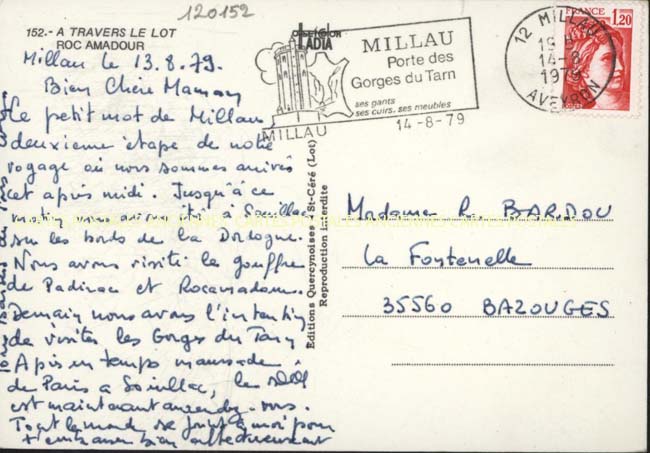 120152
152.- A TRAVERS LE LOT
ROC AMADOUR
LADIA
MILLAU
Porte des
Gorges du Tarn
ses gants
ses cuirs, ses meubles
MILLAU
14-8-79
12 MILLAU
19H
14-8
1979
AVEYRON
FRANCE
1,20
Millau le 13.8.79.
Bien Chère Maman
Le petit mot de Millau
deuxième étape de notre
voyage où nous sommes arrivés
cet après midi. Jusqu'à ce
matin nous avons été à Souillac
sur les bords de la Dordogne.
Nous avons visité le gouffre
de Padirac et Rocamadour.
Demain nous avons l'intention
de visiter les Gorges du Tarn
Après un temps maussade
de Paris à Souillac, le soleil
est maintenant au rendez-vous.
Tout le monde se joint à moi pour
t'embrasser bien affectueusement
Editions Quercynoises - St-Céré (Lot)
Reproduction interdite
Madame R. BARIDOU
La Fontenelle
35560 BAZOUGES